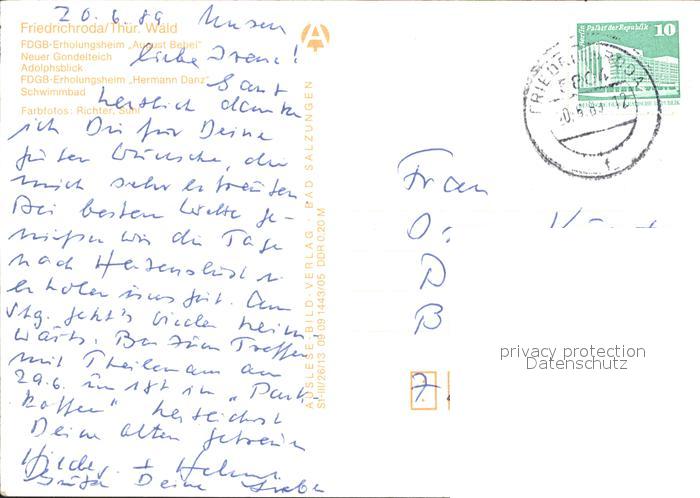 20.6.89
Friedrichroda/Thür. Wald
FDGB-Erholungsheim „August Bebel"
Neuer Gondelteich
Adolphsblick
FDGB-Erholungsheim „Hermann Danz"
Schwimmbad
Farbfotos: Richter, Suhl
Unsere
liebe Irene!
Ganz
herzlich danke
ich Dir für Deine
guten Wünsche, die
mich sehr erfreuten
Bei bestem Wetter ge-
nießen wir die Tage
nach Herzenslust u.
erholen uns gut. Am
Stg. geht's wieder heim-
wärts. Bis zum Treffen
mit am
29.6. um 18h im „Park-
kaffee" herzlichst
Deine alten getreuen
Hilde + Helmut
Grüße Deine Lieben
AUSLESE-BILD-VERLAG · BAD SALZUNGEN
SI-III/26/13 09 09 1443/05 DDR 0,20 M
Berlin, Palast der Republik 10
FRIEDRICHRODA
5804
20.6.89 12
f
Frau
D
B
7
privacy protection
Datenschutz